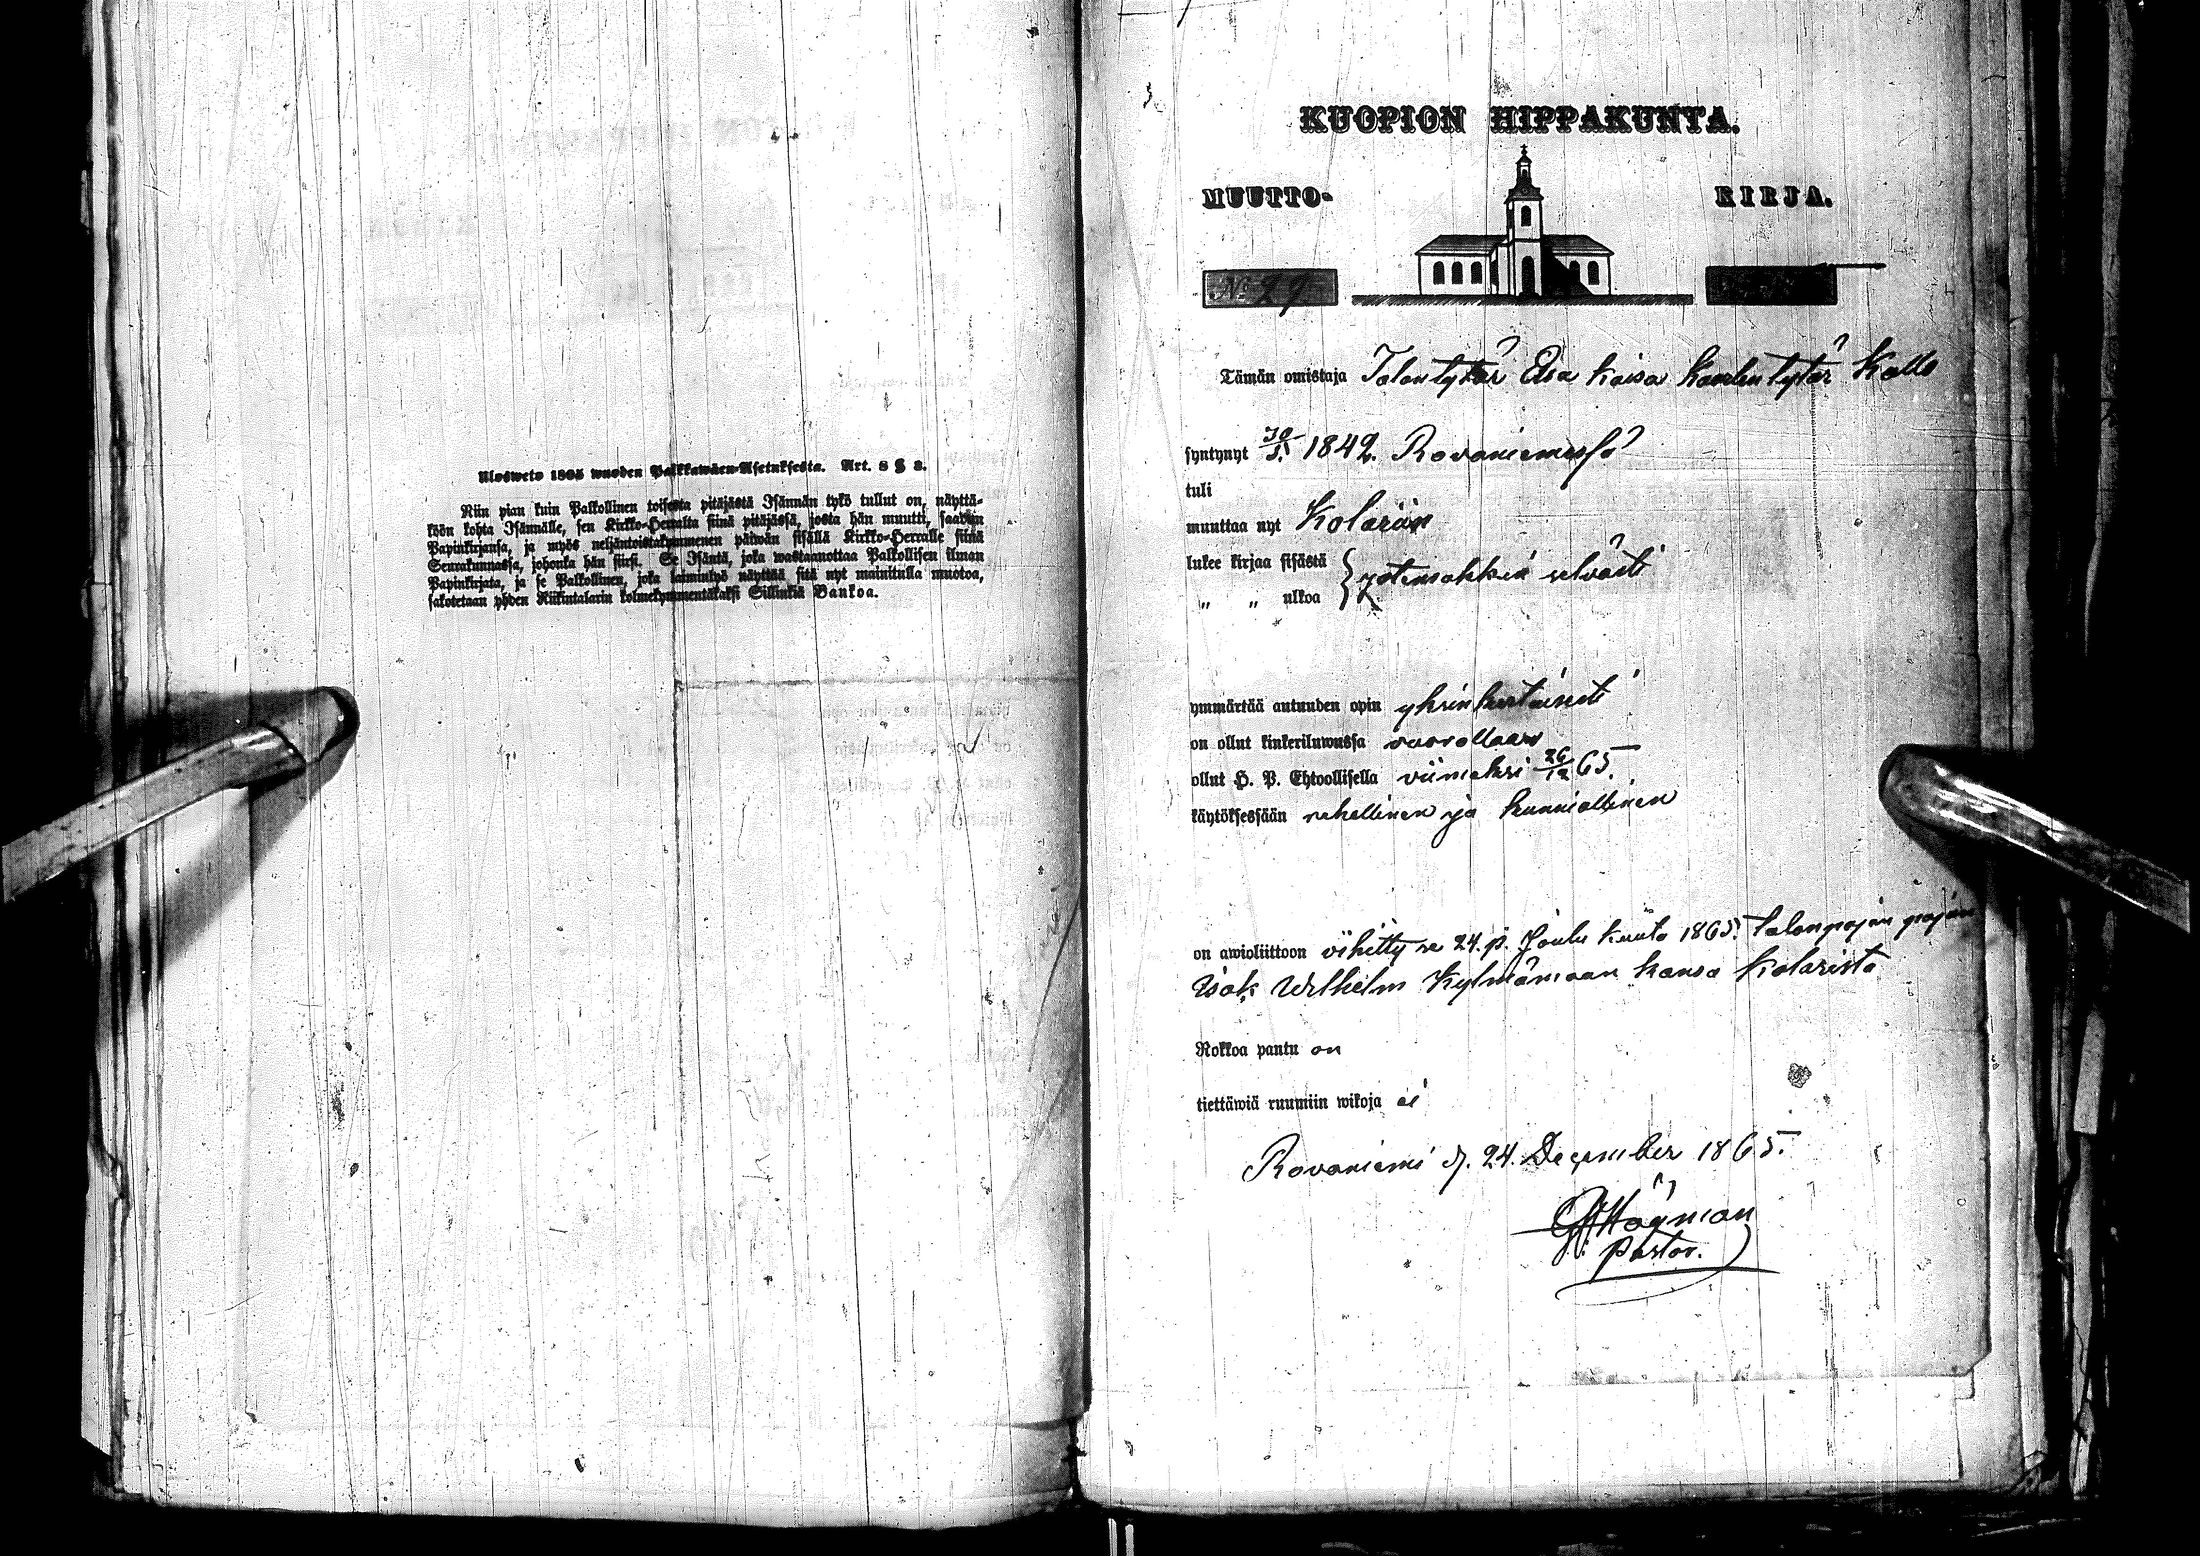 Ulosweto 1805 wuoden Palkkawäen-Asetuksesta. Art. 8 § 8.
Niin pian kuin Palkollinen toisesta pitäjästä Isännän tykö tullut on, näyttä-
köön kohta Isännälle, sen Kirkko-Herralta siinä pitäjässä, josta hän muutti, saadun
Papinkirjansa, ja myös neljäntoistakymmenen päiwän sisällä Kirkko-Herralle siinä
Seurakunnassa, johonka hän siirsi. Se Isäntä, joka wastaanottaa Palkollisen ilman
Papinkirjata, ja se Palkollinen, joka laiminlyö näyttää sitä nyt mainitulla muotoa,
sakotetaan yhden Riikintalarin kolmekymmentäkaksi Sillinkiä Bankoa.
KUOPION HIPPAKUNTA.
MUUTTO- KIRJA.
No 29
Tämän omistaja Talontytär Elsa Kaisa Kaarlentytär Kallo
syntynyt 1842. Rovaniemessä
tuli
muuttaa nyt Kolariin
lukee kirjaa sisästä
„ „ ulkoa selvästi
ymmärtää autuuden opin yksinkertaisesti
on ollut kinkeriluwussa vuorollaan
ollut H. P. Ehtoollisella viimeksi 26/12 65.
käytöksessään rehellinen ja kunniallinen
on awioliittoon vihitty se 24. p. Joulu kuuta 1865. talonpojan pojan
Isak Wilhelm Kylmämaan kansa Kolarista
Rokkoa pantu on
tiettäwiä ruumiin wikoja ei
Rovaniemi d. 24. December 1865.
Högman
Pastor.